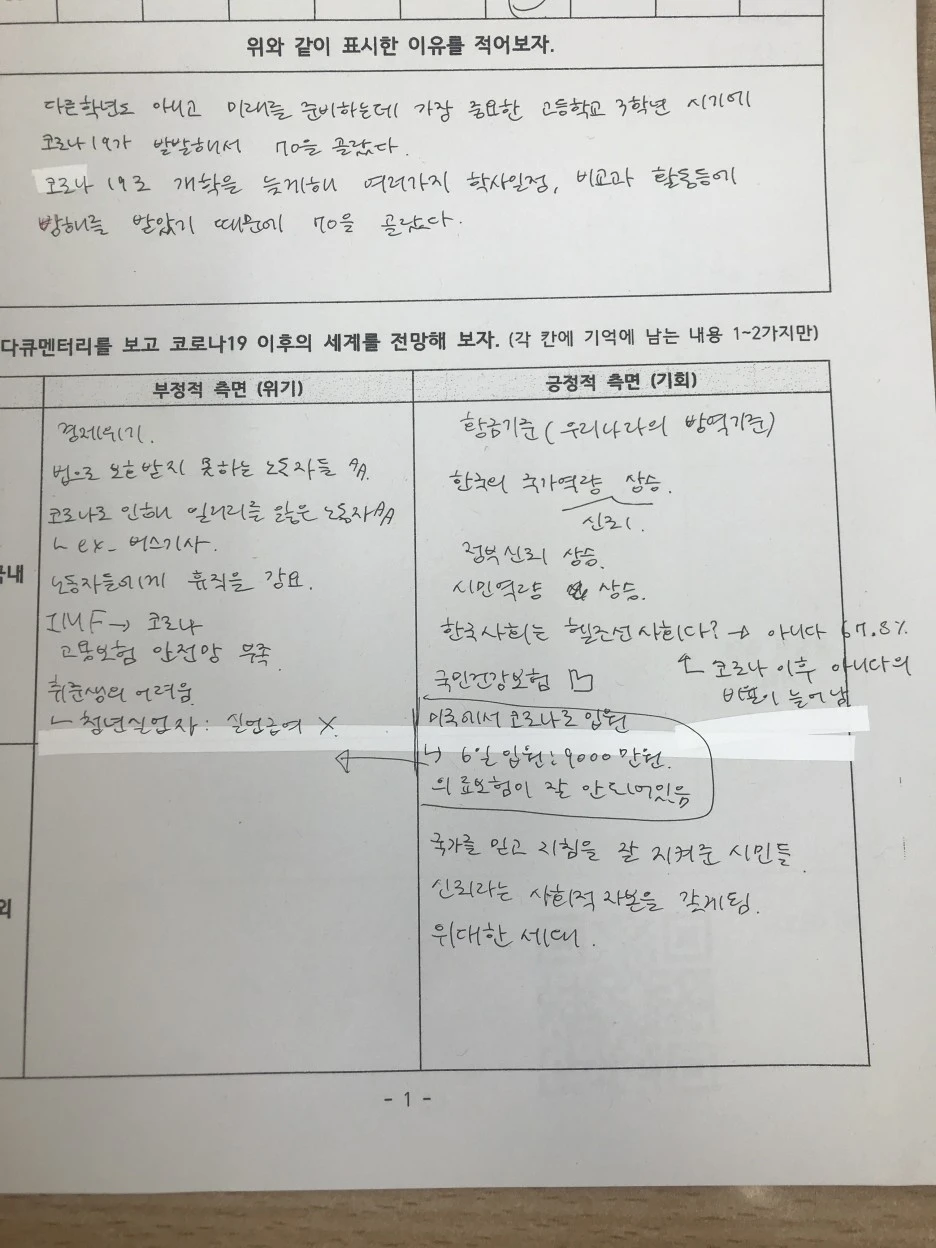 위와 같이 표시한 이유를 적어보자.
다른학년도 아니고 미래를 준비하는데 가장 중요한 고등학교 3학년 시기에
코로나19가 발발해서 70을 골랐다.
코로나 19로 개학을 늦게해 여러가지 학사일정, 비교과 활동등에
방해를 받았기 때문에 70을 골랐다.
다큐멘터리를 보고 코로나19 이후의 세계를 전망해 보자. (각 칸에 기억에 남는 내용 1~2가지만)
부정적 측면 (위기)
경제위기.
법으로 보호받지 못하는 노동자들
코로나로 인해 일자리를 잃은 노동자
ㄴ ex_ 버스기사.
노동자들에게 휴직을 강요.
IMF → 코로나
고용보험 안전망 부족.
취준생의 어려움
ㄴ 청년실업자: 실업급여 X.
긍정적 측면 (기회)
황금기준 (우리나라의 방역기준)
한국의 국가역량 상승.
신뢰.
정부신뢰 상승.
시민역량 상승.
한국사회는 헬조선 사회다? → 아니다 67.8%
코로나 이후 아니다의
비율이 늘어남
국민건강보험
미국에서 코로나로 입원
↳ 6일 입원: 9000만원.
의료보험이 잘 안되어있음
국가를 믿고 지침을 잘 지켜준 시민들.
신뢰라는 사회적 자본을 갖게됨.
위대한 세대.
- 1 -